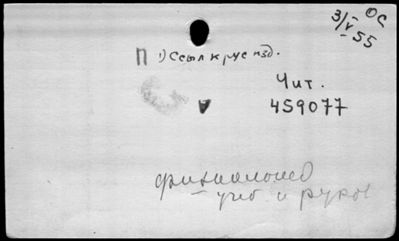 ОС
3/V 55
П 1) Ссыл к рус изд.
Чит.
459077
физиологов
учеб и руков